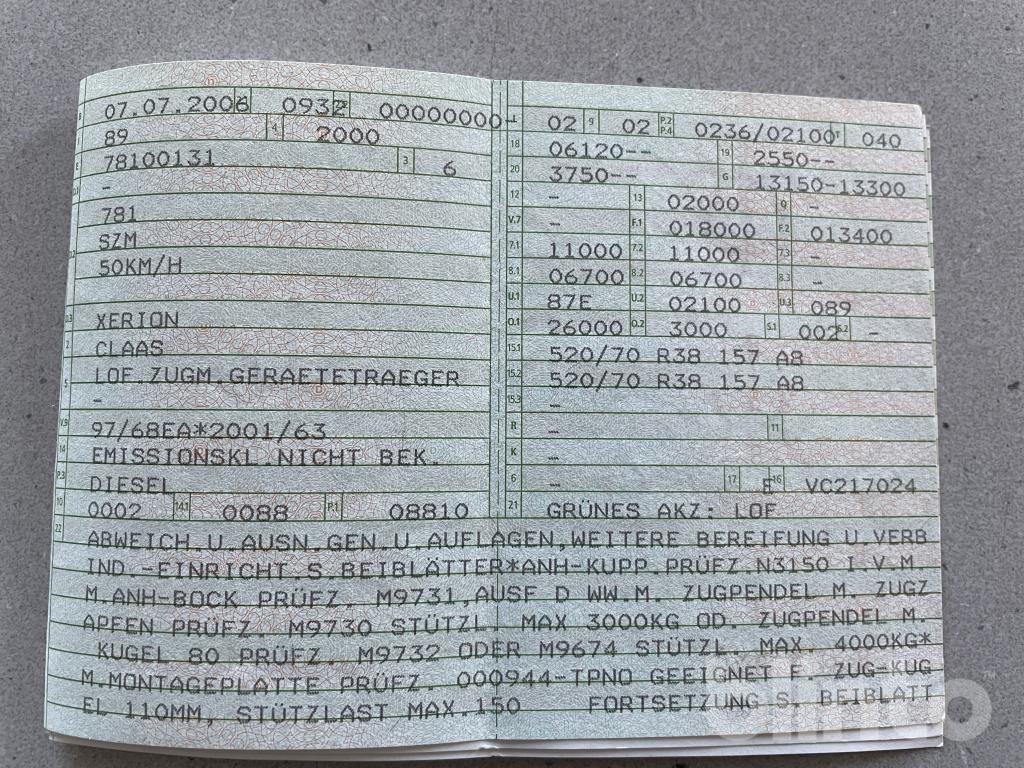 07.07.2006 0932 00000000-
89 4 2000
78100131 3 6
-
781
SZM
50KM/H
XERION
CLAAS
LOF.ZUGM.GERAETETRAEGER
-
97/68EA*2001/63
EMISSIONSKL.NICHT BEK.
DIESEL
10 0002 14.1 0088 P.1 08810
L 02 9 02 P.2 P.4 0236/02100 T 040
18 06120-- 19 2550--
20 3750-- G 13150-13300
12 - 13 02000 Q -
V.7 - F.1 018000 F.2 013400
7.1 11000 7.2 11000 7.3 -
8.1 06700 8.2 06700 8.3 -
U.1 87E U.2 02100 U.3 089
O.1 26000 O.2 3000 S.1 002 S.2 -
15.1 520/70 R38 157 A8
15.2 520/70 R38 157 A8
15.3 -
R - 11
K -
6 - 17 E 16 VC217024
21 GRÜNES AKZ: LOF
22 ABWEICH.U.AUSN.GEN.U.AUFLAGEN,WEITERE BEREIFUNG U.VERB
IND.-EINRICHT.S.BEIBLÄTTER*ANH-KUPP.PRÜFZ.N3150 I.V.M.
M.ANH-BOCK PRÜFZ. M9731,AUSF D WW.M. ZUGPENDEL M. ZUGZ
APFEN PRÜFZ. M9730 STÜTZL. MAX 3000KG OD. ZUGPENDEL M.
KUGEL 80 PRÜFZ. M9732 ODER M9674 STÜTZL. MAX. 4000KG*
M.MONTAGEPLATTE PRÜFZ. 000944-TPNO GEEIGNET F. ZUG-KUG
EL 110MM, STÜTZLAST MAX.150 FORTSETZUNG S. BEIBLATT